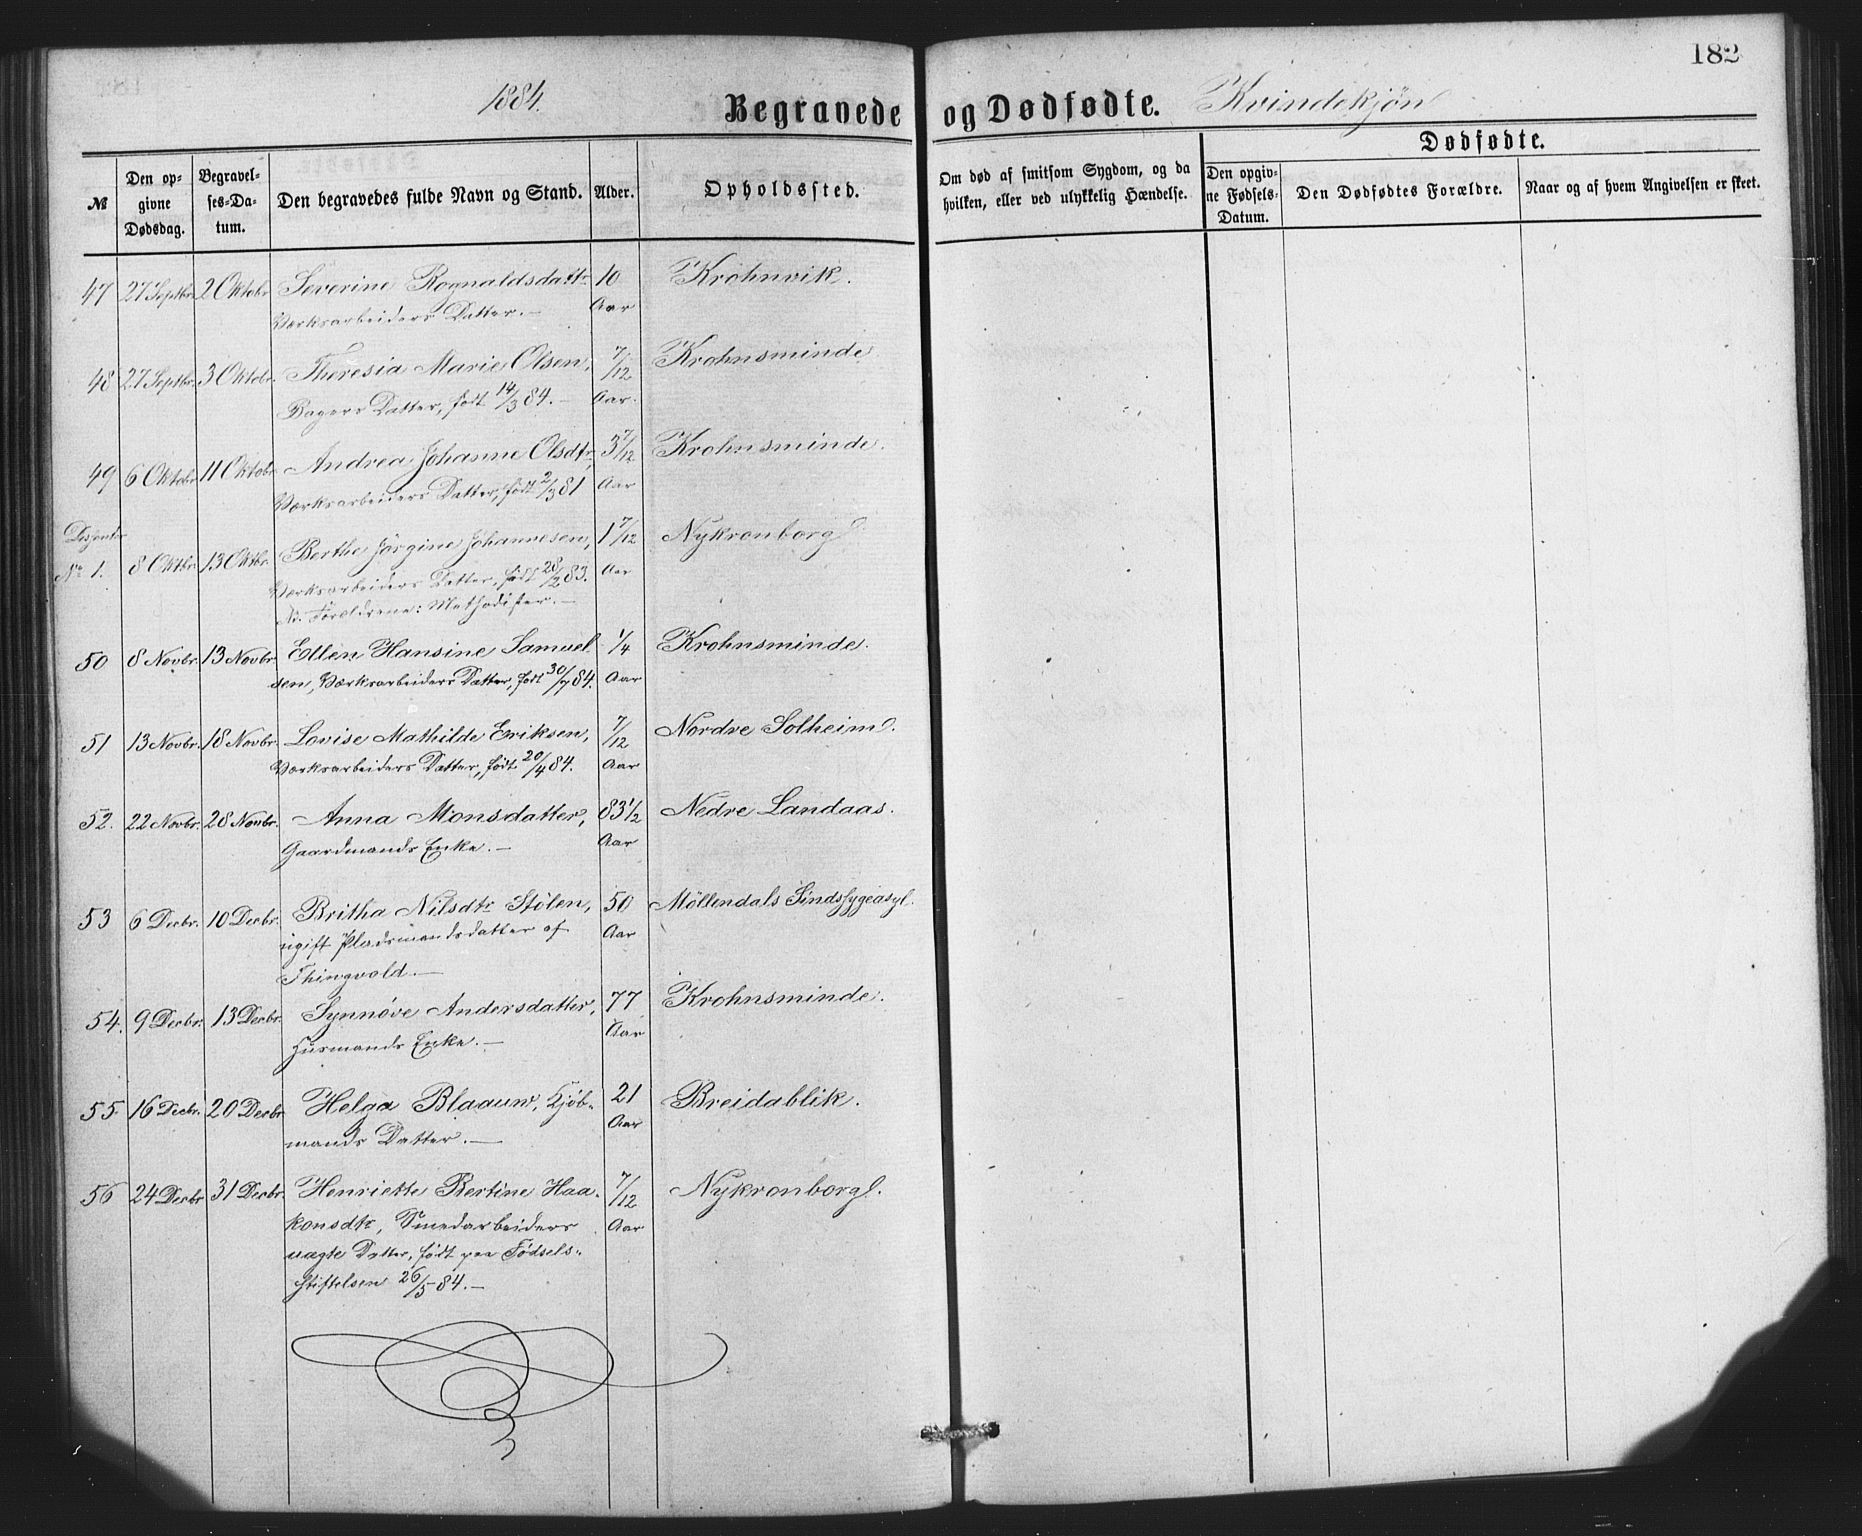 182
1884.
Begravede og Dødfødte. Kvindekjøn
Dødfødte.
№
Den opgivne Dødsdag.
Begravelses-Datum.
Den begravedes fulde Navn og Stand.
Alder.
Opholdssted.
Om død af smitsom Sygdom, og da hvilken, eller ved ulykkelig Hændelse.
Den opgivne Fødsels-Datum.
Den Dødfødtes Forældre.
Naar og af hvem Angivelsen er skeet.
47 27 Septbr. 2 Oktobr. Severine Rognaldsdattr. 10 Krohnvik.
Værksarbeiders Datter. — Aar
48 27 Septbr. 3 Oktobr. Theresia Marie Olsen, 7/12 Krohnsminde
Bagers Datter, født 14/3 84. — Aar.
49 6 Oktobr. 11 Oktobr. Andrea Johanne Olsdtr., 3 7/12 Krohnsminde.
Værksarbeiders Datter, født 2/3 81 Aar
Dissenter
No 1. 8 Oktbr. 13 Oktbr. Berthe Jørgine Johannesen, 1 7/12 Nykronborg
Værksarbeiders Datter, født 28/2 83. Aar
Forældrene: Methodister. —
50 8 Novbr. 13 Novbr. Ellen Hansine Samuel 1/4 Krohnsminde.
sen, Værksarbeiders Datter, født 30/7 84. Aar
51 13 Novbr. 18 Novbr. Lovise Mathilde Eriksen, 7/12 Nordre Solheim.
Værksarbeiders Datter, født 20/4 84. Aar
52. 22 Novbr. 28 Novbr. Anna Monsdatter, 83 1/2 Nedre Landaas.
Gaardmands Enke. — Aar
53 6 Decbr. 10 Decbr. Britha Nilsdtr Stølen, 50 Möllendals Sindssygeasyl.
ugift Pladsmandsdatter af Aar
Thingvold. —
54. 9 Decbr. 13 Decbr. Synnøve Andersdatter, 77 Krohnsminde.
Husmands Enke. — Aar
55 16 Decbr. 20 Decbr. Helga Blaauw, Kjøb- 21 Breidablik.
mands Datter. — Aar
56 24 Decbr. 31 Decbr. Henriette Bertine Haa- 7/12 Nykronborg.
konsdtr, Smedarbeiders Aar
uægte Datter, født paa Fødsels-
stiftelsen 26/5 84. —